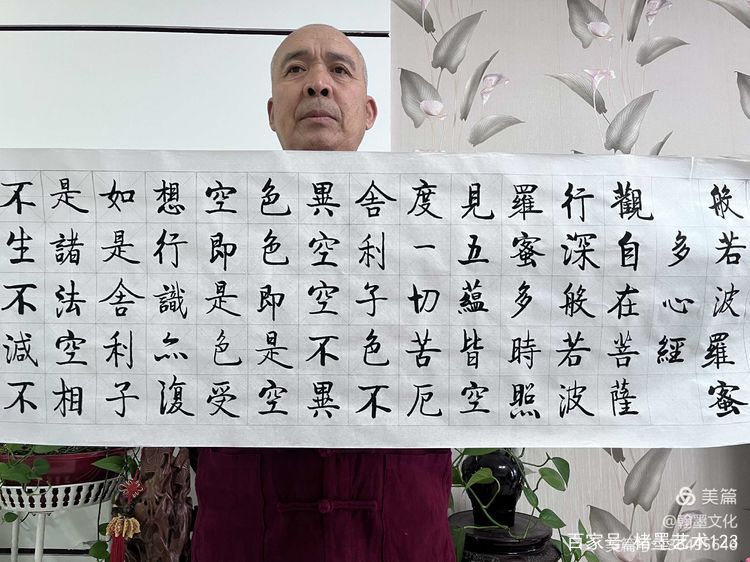 般若波羅蜜
多心經
觀自在菩薩
行深般若波
羅蜜多時照
見五蘊皆空
度一切苦厄
舍利子色不
異空空不異
色色即是空
空即是色受
想行識亦復
如是舍利子
是諸法空相
不生不滅不
美篇
@翰墨文化
百家号/楮墨艺术123